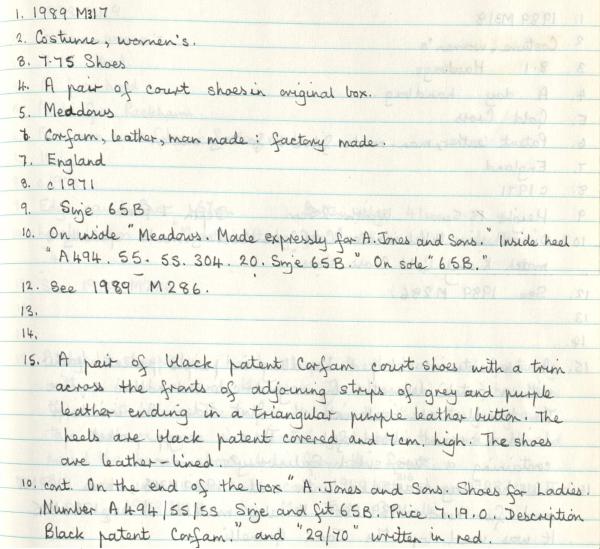 1. 1989 M317
2. Costume, women's.
3. 7.75 Shoes
4. A pair of court shoes in original box.
5. Meddows
6. Corfam, leather, man made; factory made.
7. England
8. c1971
9. Size 65B
10. On inside "Meadows. Made expressly for A. Jones and Sons." Inside heel
"A494. 55. 5S. 304. 20. Size 65B." On sole "65B."
12. See 1989 M286.
13.
14.
15. A pair of black patent Corfam court shoes with a trim
across the fronts of adjoining strips of grey and purple
leather ending in a triangular purple leather button. The
heels are black patent covered and 7cm. high. The shoes
are leather-lined.
10. cont. On the end of the box "A. Jones and Sons. Shoes for Ladies.
Number A494/55/5S Size and fit 65B. Price 7.19.0. Description
Black patent Corfam." and "29/70" written in red.